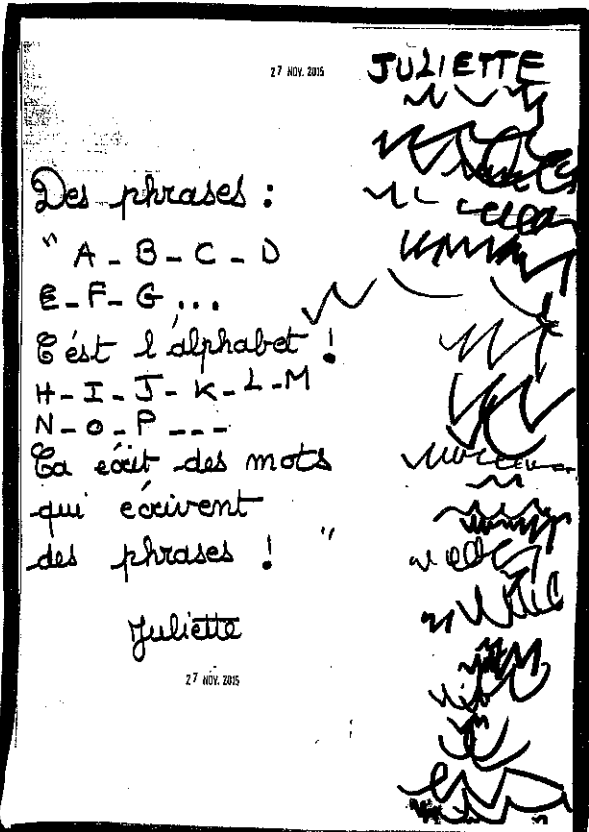 27 NOV. 2015
JULIETTE
Des phrases :
" A - B - C - D
E - F - G ...
C'est l'alphabet !
H - I - J - K - L - M
N - O - P - - -
Ca écrit des mots
qui écrivent
des phrases ! "
Juliette
27 NOV. 2015